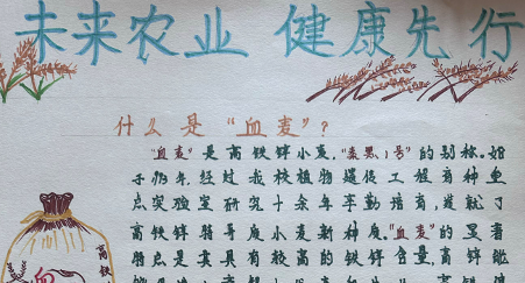 未来农业 健康先行
什么是“血麦”?
“血麦”是高铁锌小麦,“秦黑1号”的别称。始
于1993年,经过我校植物遗传工程育种重
点实验室研究十余年辛勤培育,造就了
高铁锌骑哥庞小麦新种质。“血麦”的显著
特点是其具有较高的铁锌含量,高锌能
高铁
血